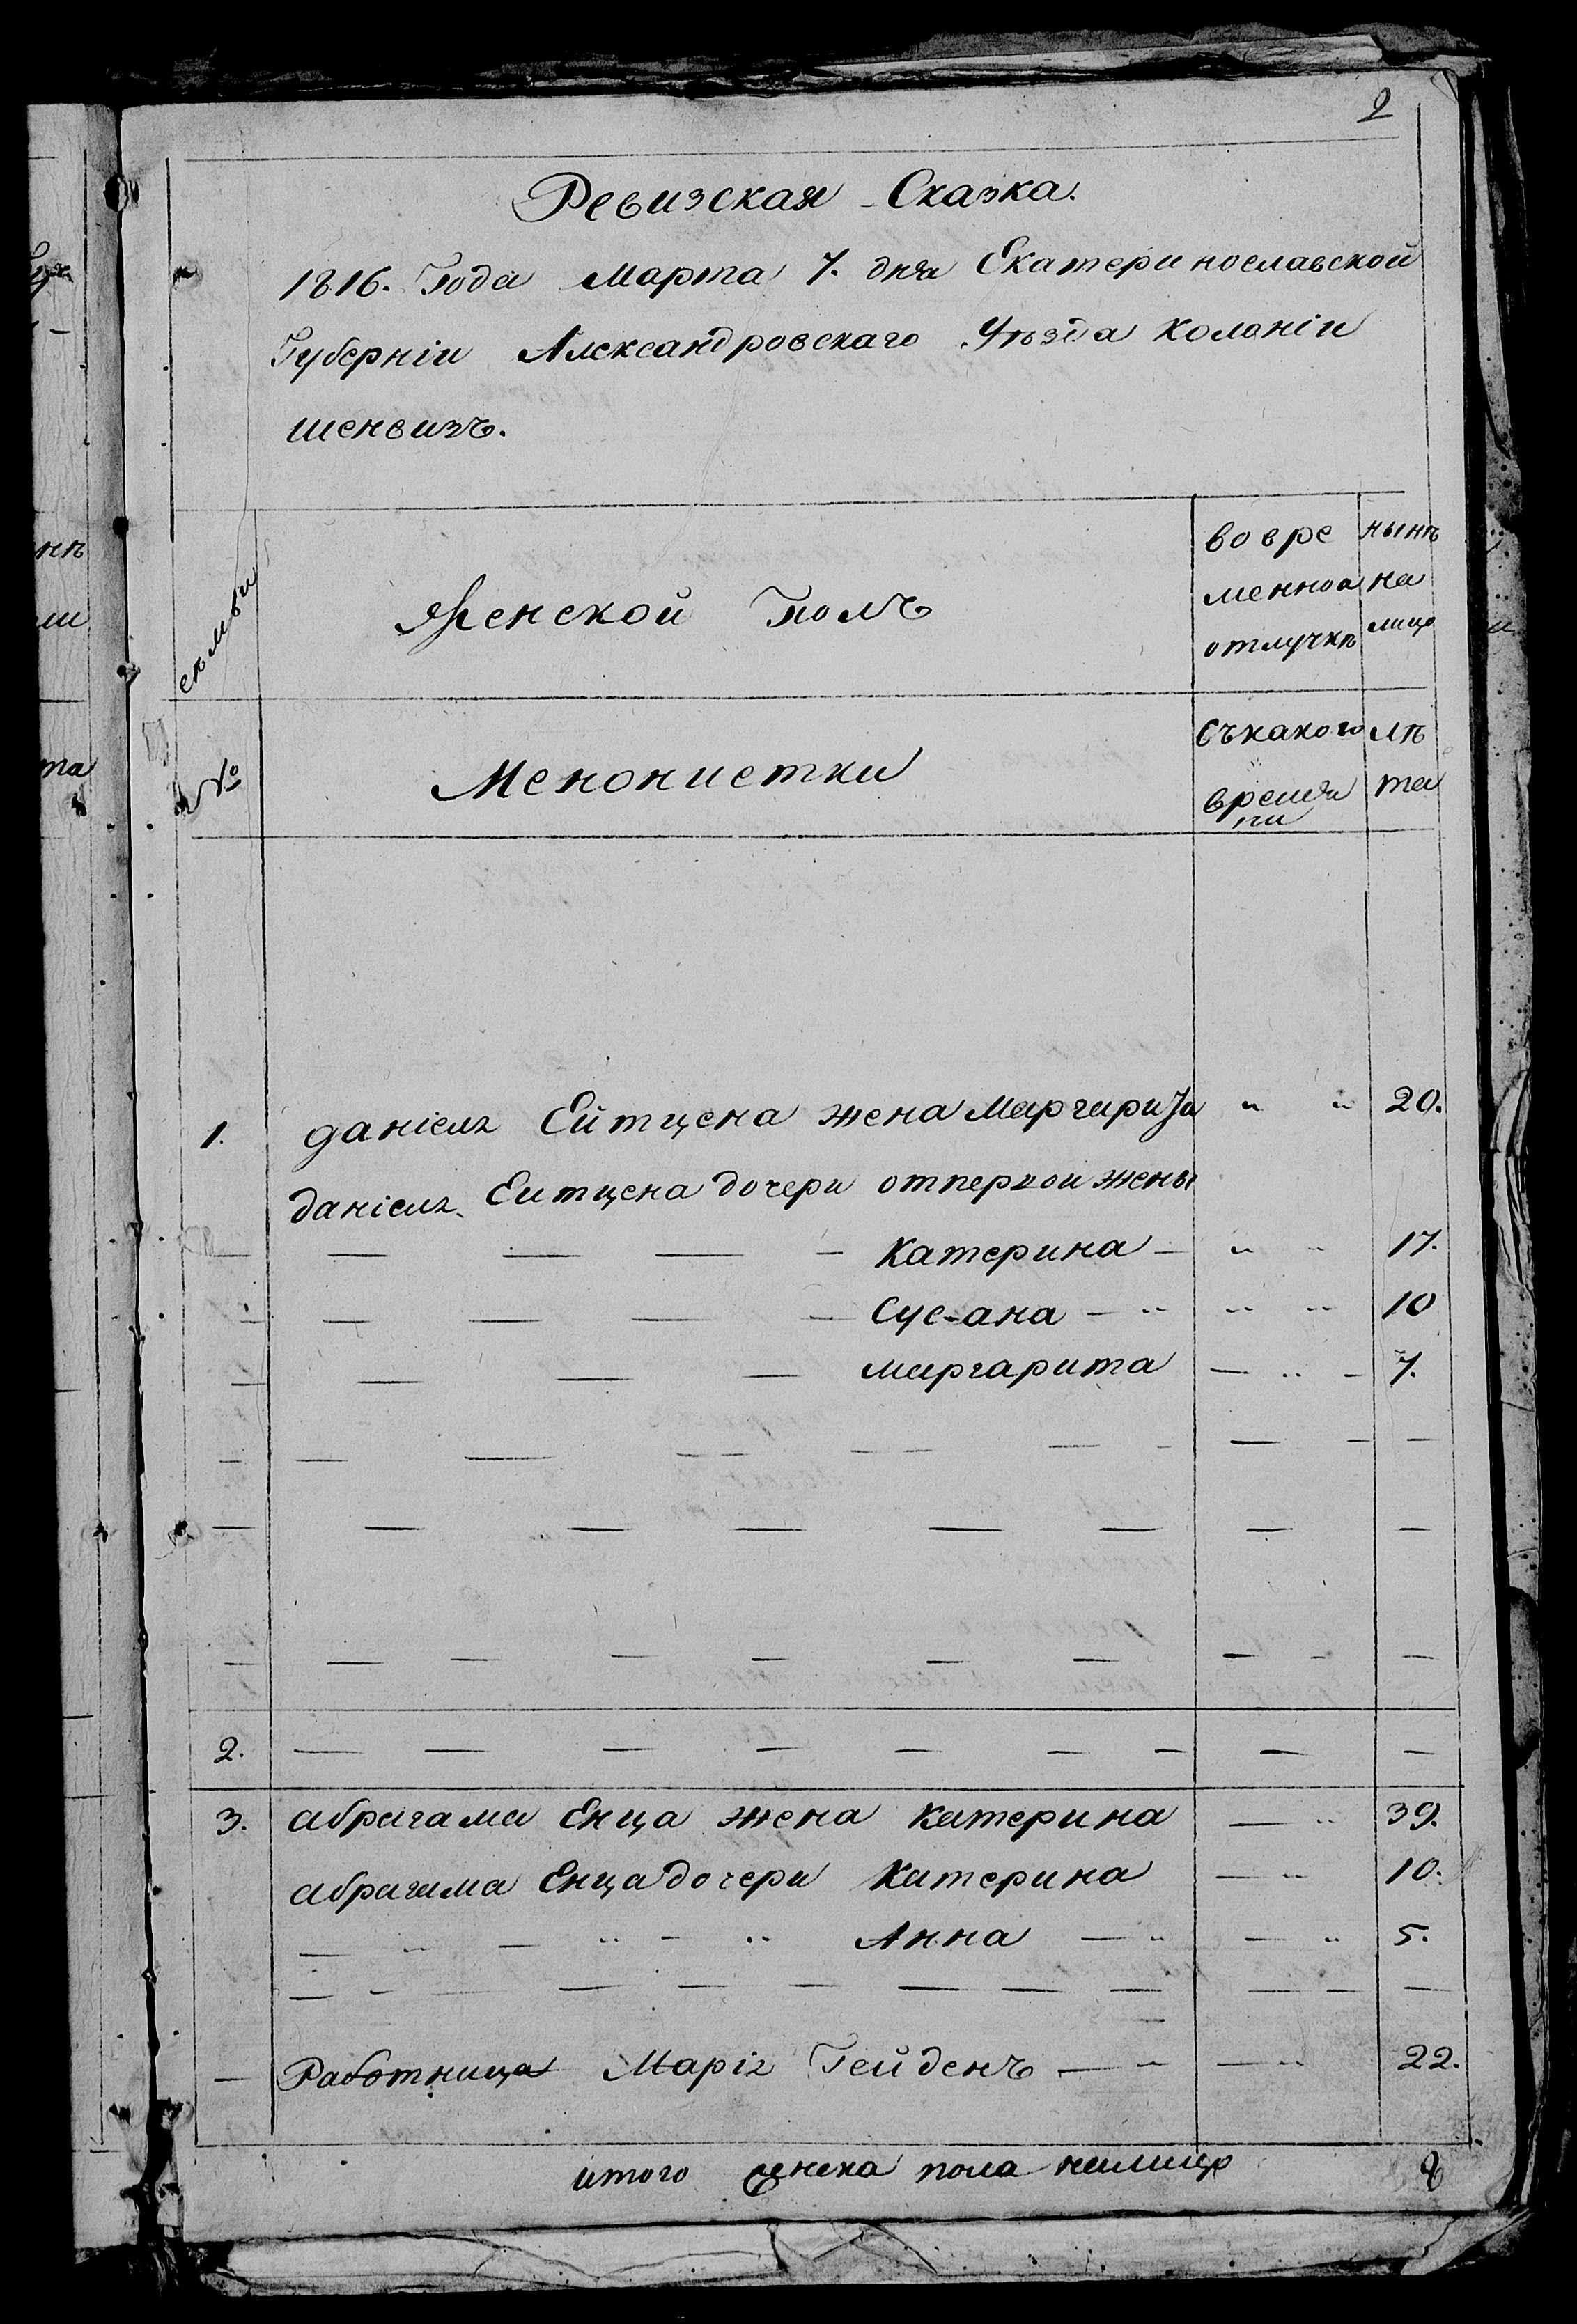 2
Ревизская Сказка.
1816. Года Марта 7. дня Екатеринославской
Губерніи Александровскаго Уѣзда Колоніи
шенвизъ.
во вре нынѣ
семьи Женской Полъ менноа на
отлучкѣ лицо
съкакого лѣ
№ Менонистки
времѧни та
1. даніеля Ейтцена жена Маргарита " " 20.
даніеля Еитцена дочери отпервои жены
— — — — — Катерина — " " 17.
— — — — — Сус-ана — " " " 10
— — — — маргарита — " — 7.
— — — — — — — — — — —
— — — — — — — — —
— — — — — — — — — —
2. — — — — — — — — —
3. абрагама Енца жена катерина — " 39.
абрагама Енца дочери Катерина — " 10.
— " — " — " Анна — " — " 5.
— — — — — — — — — — — —
— Работница Марія Гейденъ — " — " 22.
итого женска пола налицо 8